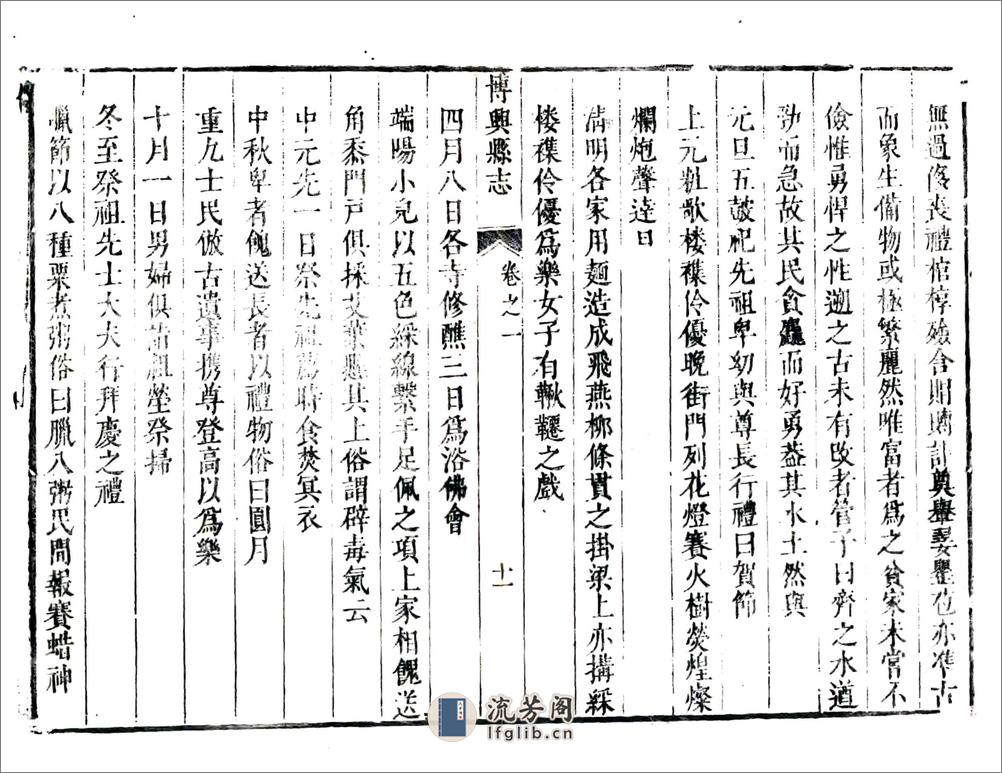 無過侈喪禮棺椁殮含賵賻訃奠轝翣壐苞亦准古
而象生備物或極繁麗然唯富者為之貧家未嘗不
儉惟勇悍之性邇之古未有改者管子曰齊之水道
勁而急故其民貪麤而好勇葢其水土然與
元旦五鼓祀先祖卑幼與尊長行禮曰賀節
上元粧歌楼襍伶優晚街門列花燈賽火樹熒煌燦
爛炮聲達日
清明各家用麵造成飛燕柳條貫之掛梁上亦搆綵
楼襍伶優爲樂女子有鞦韆之戲
博興縣志
卷之一
十一
四月八日各寺修醮三日爲浴佛會
端陽小兒以五色綵線繫手足佩之項上家相餽送
角黍門戸俱採艾葉懸其上俗謂辟毒氣云
中元先一日祭先祖薦時食焚冥衣
中秋卑者餽送長者以禮物俗曰圓月
重九士民倣古遺事携尊登高以爲樂
十月一日男婦俱詣祖塋祭掃
冬至祭祖先士大夫行拜慶之禮
臘節以八種粟煮粥俗曰臘八粥民間報賽蜡神
流芳阁
lfglib.cn